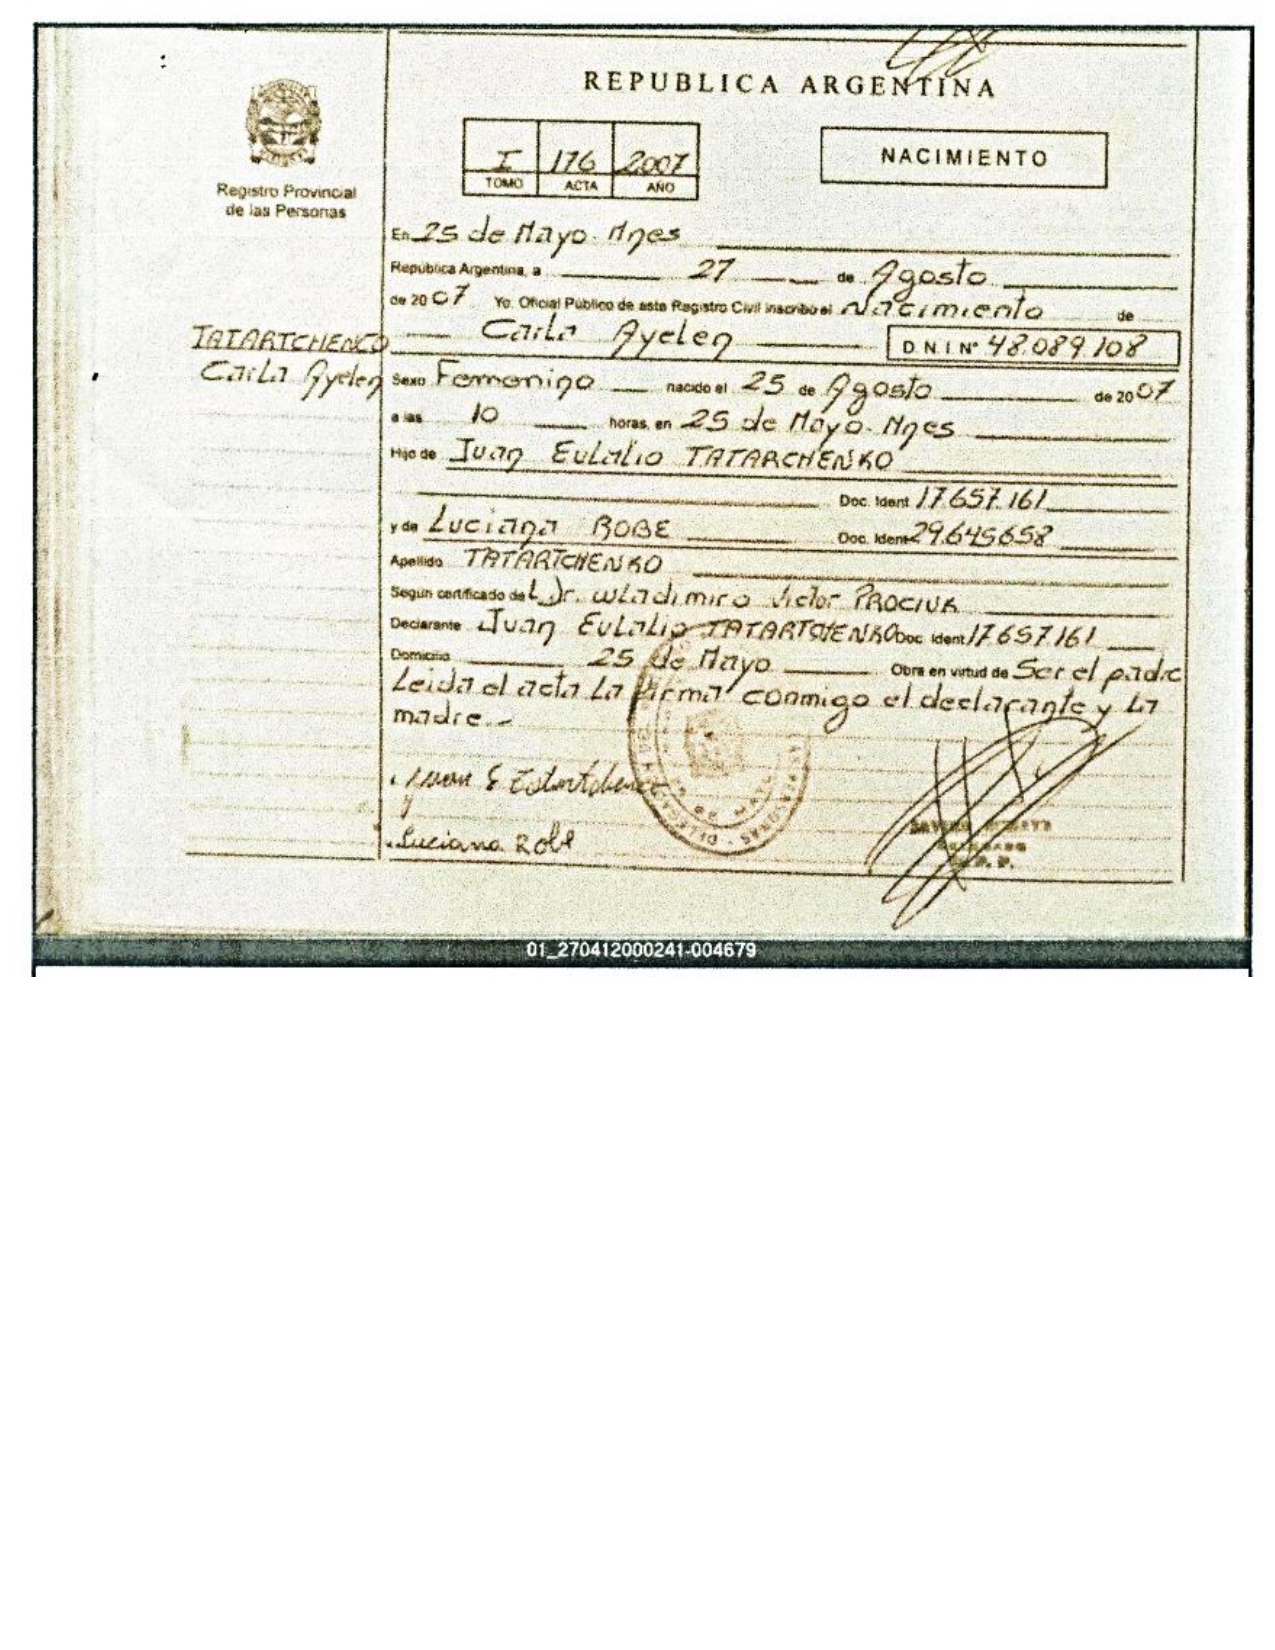 REPUBLICA ARGENTINA
I 176 2007
TOMO ACTA AÑO
NACIMIENTO
Registro Provincial
de las Personas
En 25 de Mayo. Mnes
República Argentina, a 27 de Agosto
de 2007 Yo. Oficial Público de este Registro Civil inscribo el Nacimiento de
TATARTCHENCO
Carla Ayelen
Carla Ayelen D.N.I Nº 48.089.108
Sexo Femenino nacido el 25 de Agosto de 2007
a las 10 horas, en 25 de Mayo. Mnes
Hijo de Juan Eulalio TATARCHENKO
Doc. Ident 17.657.161
y de Luciana ROBE Doc. Ident 29.645.658
Apellido TATARTCHENKO
Según certificado del Dr. Wladimiro Victor PROCIUK
Declarante Juan Eulalio TATARTCHENKO Doc. Ident 17.657.161
Domicilio 25 de Mayo Obra en virtud de Ser el padre
Leida el acta La firma conmigo el declarante y La
madre.-
Juan E
Luciana Robe
01_270412000241-004679